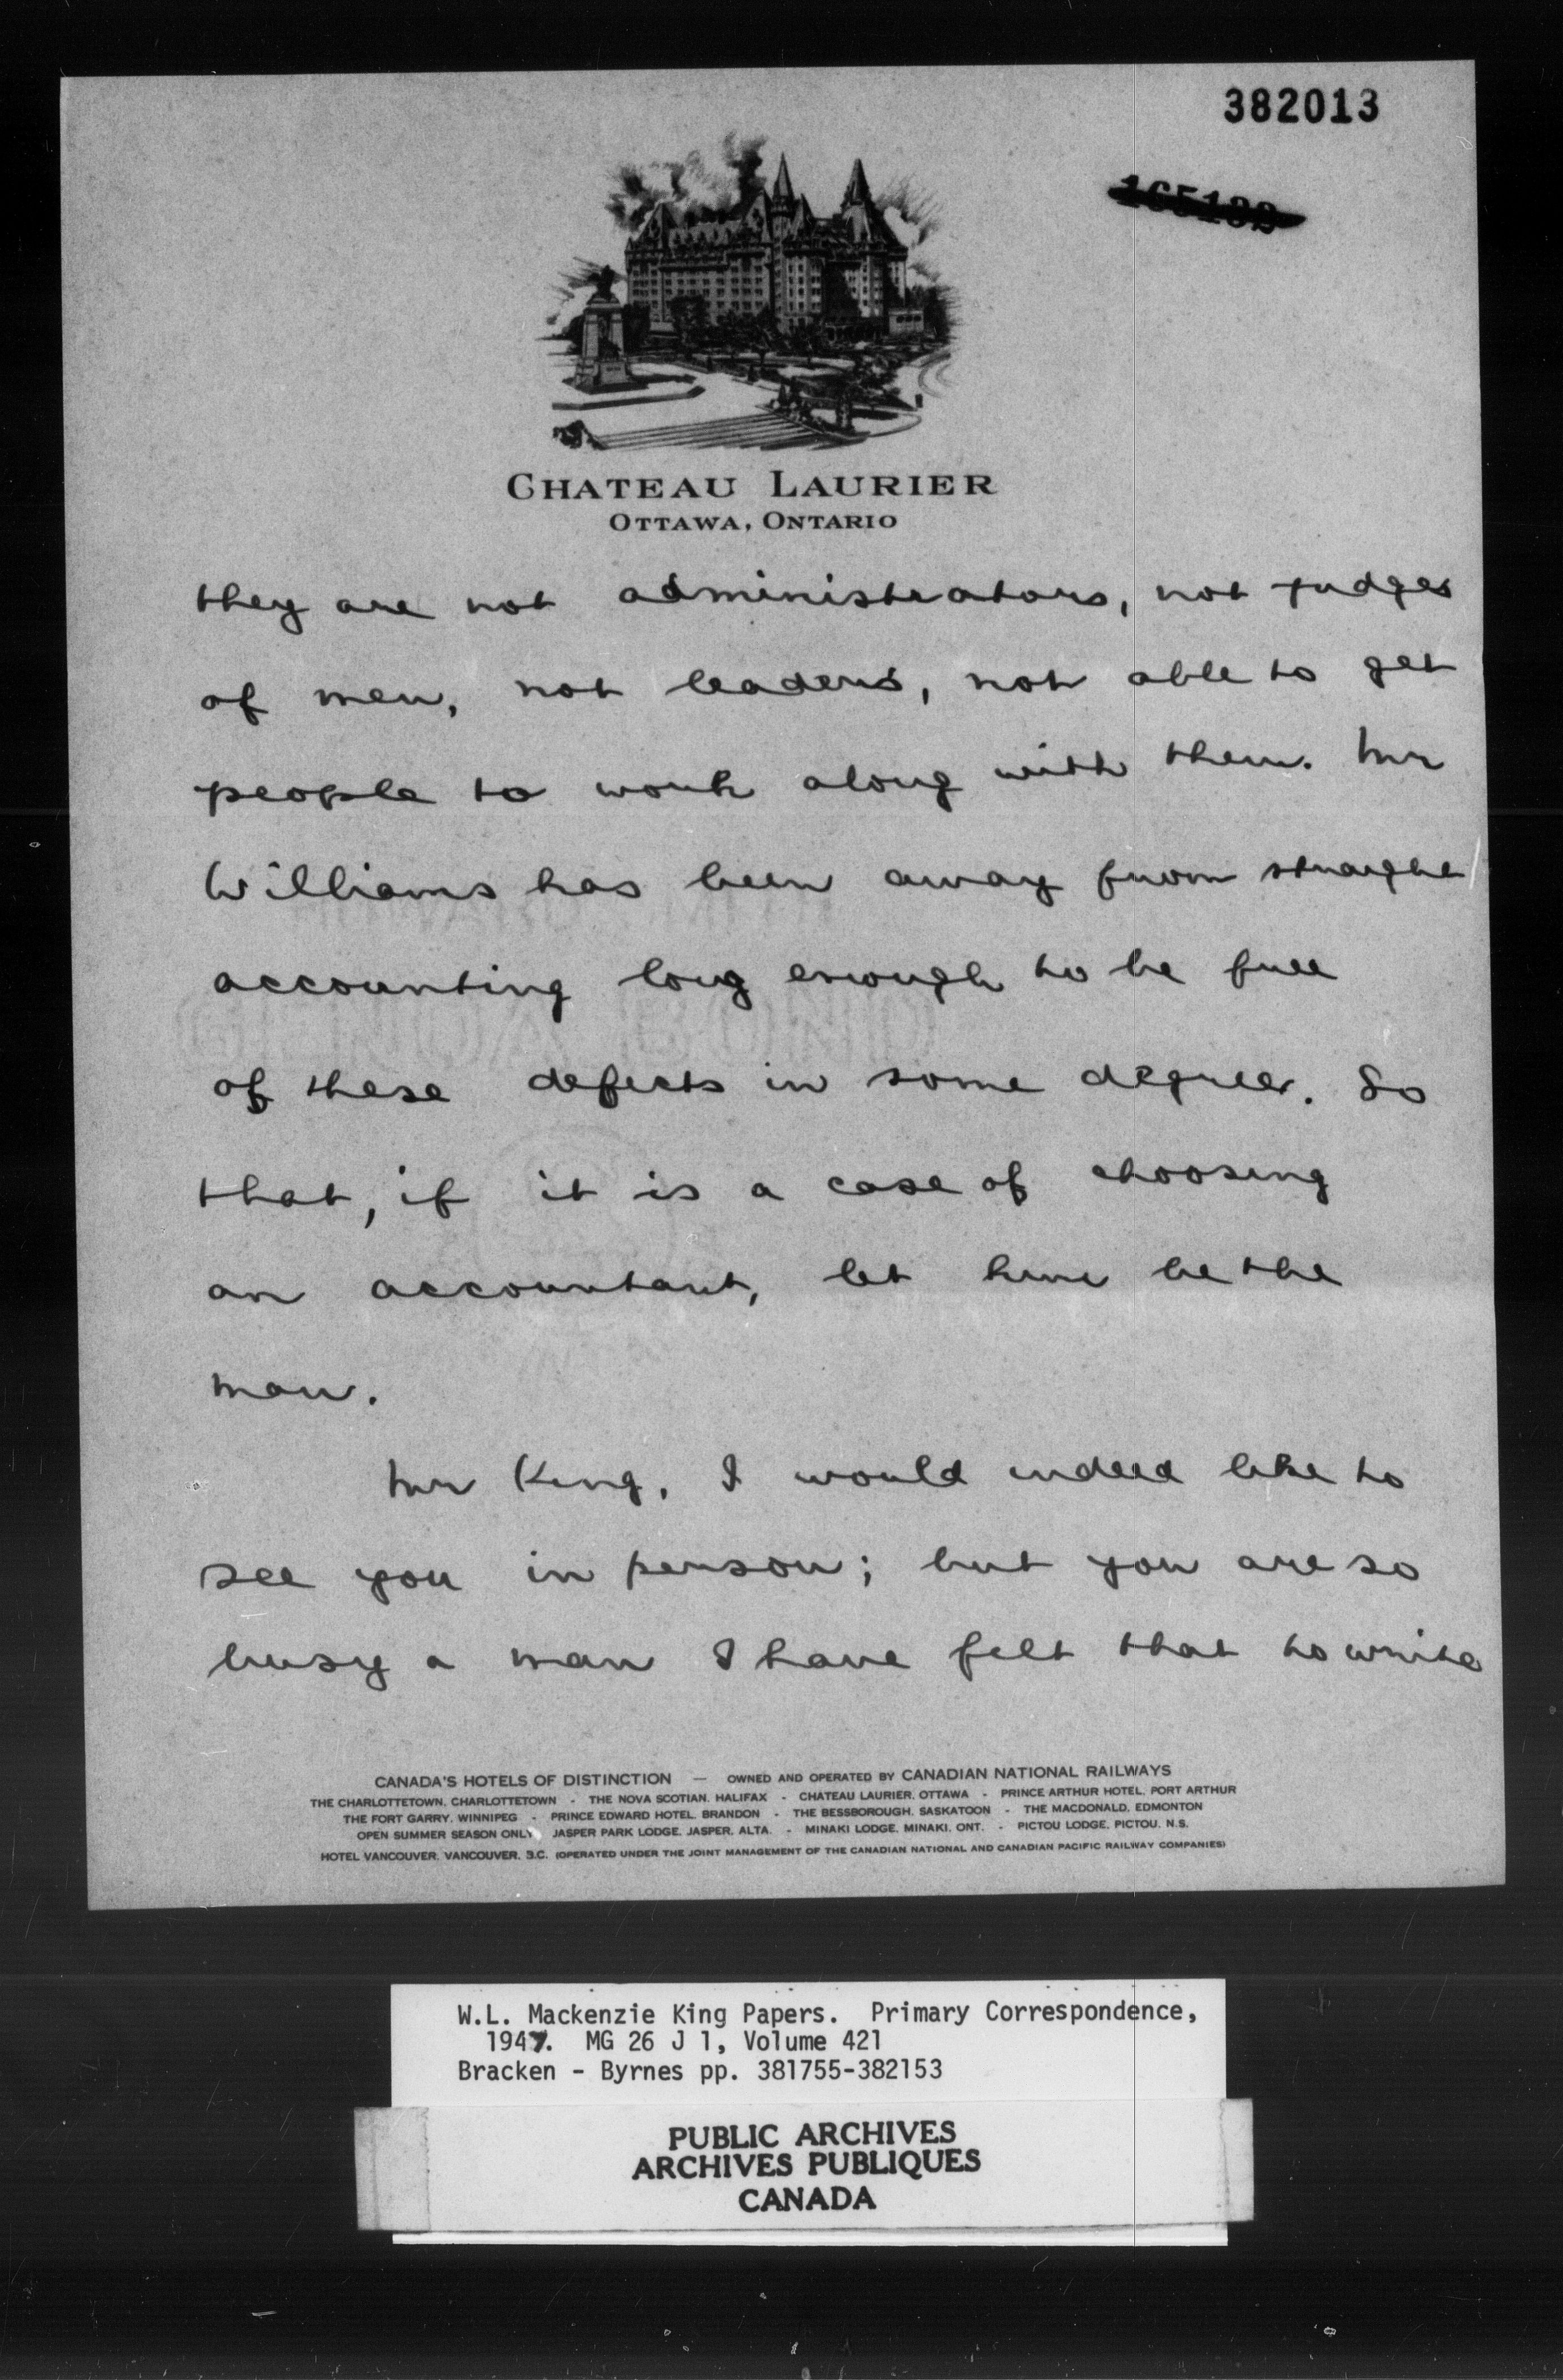 382013
CHATEAU LAURIER
OTTAWA, ONTARIO
they are not administrators, not judges
of men, not leaders, not able to get
people to work along with them. Mr
Williams has been away from straight
accounting long enough to be free
of these defects in some degree. So
that, if it is a case of choosing
an accountant, let him be the
man.
Mr King, I would indeed like to
see you in person; but you are so
busy a man I have felt that to write
CANADA'S HOTELS OF DISTINCTION — OWNED AND OPERATED BY CANADIAN NATIONAL RAILWAYS
THE CHARLOTTETOWN, CHARLOTTETOWN - THE NOVA SCOTIAN, HALIFAX - CHATEAU LAURIER, OTTAWA - PRINCE ARTHUR HOTEL, PORT ARTHUR
THE FORT GARRY, WINNIPEG - PRINCE EDWARD HOTEL, BRANDON - THE BESSBOROUGH, SASKATOON - THE MACDONALD, EDMONTON
OPEN SUMMER SEASON ONLY JASPER PARK LODGE, JASPER, ALTA. - MINAKI LODGE, MINAKI, ONT. - PICTOU LODGE, PICTOU, N.S.
HOTEL VANCOUVER, VANCOUVER, B.C. (OPERATED UNDER THE JOINT MANAGEMENT OF THE CANADIAN NATIONAL AND CANADIAN PACIFIC RAILWAY COMPANIES)
W.L. Mackenzie King Papers. Primary Correspondence,
1947. MG 26 J 1, Volume 421
Bracken - Byrnes pp. 381755-382153
PUBLIC ARCHIVES
ARCHIVES PUBLIQUES
CANADA